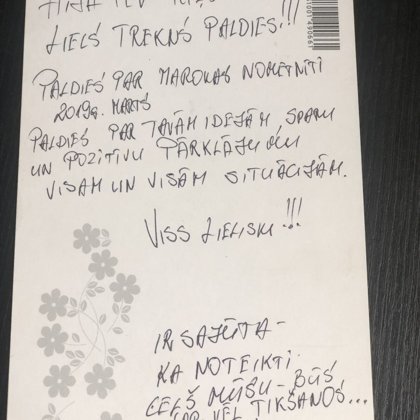 LIELS TREKNS PALDIES!!!
PALDIES PAR MAROKAS NOMETNĪTI
2019g. MARTS
PALDIES PAR TAVĀM IDEJĀM, SPARU
UN POZITĪVU PĀRKLĀJUMU
VISAM UN VISĀM SITUĀCIJĀM.
VISS LIELISKI!!!
IR SAJŪTA -
KA NOTEIKTI
CEĻŠ MŪSU BŪS
PAR VĒL TIKŠANOS...